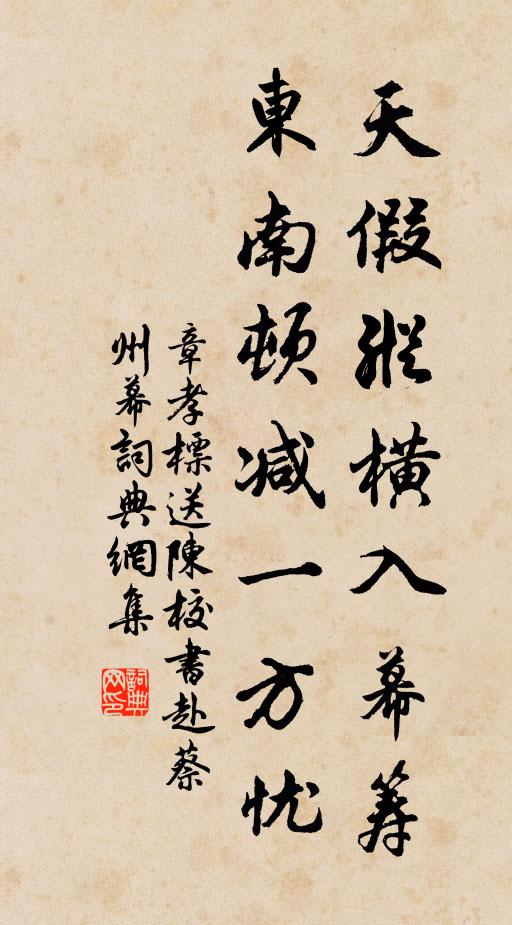 天假縱橫入幕筹
東南頓减一方忧
章孝標送陳校書赴蔡
州幕詞典網集
詞典网印